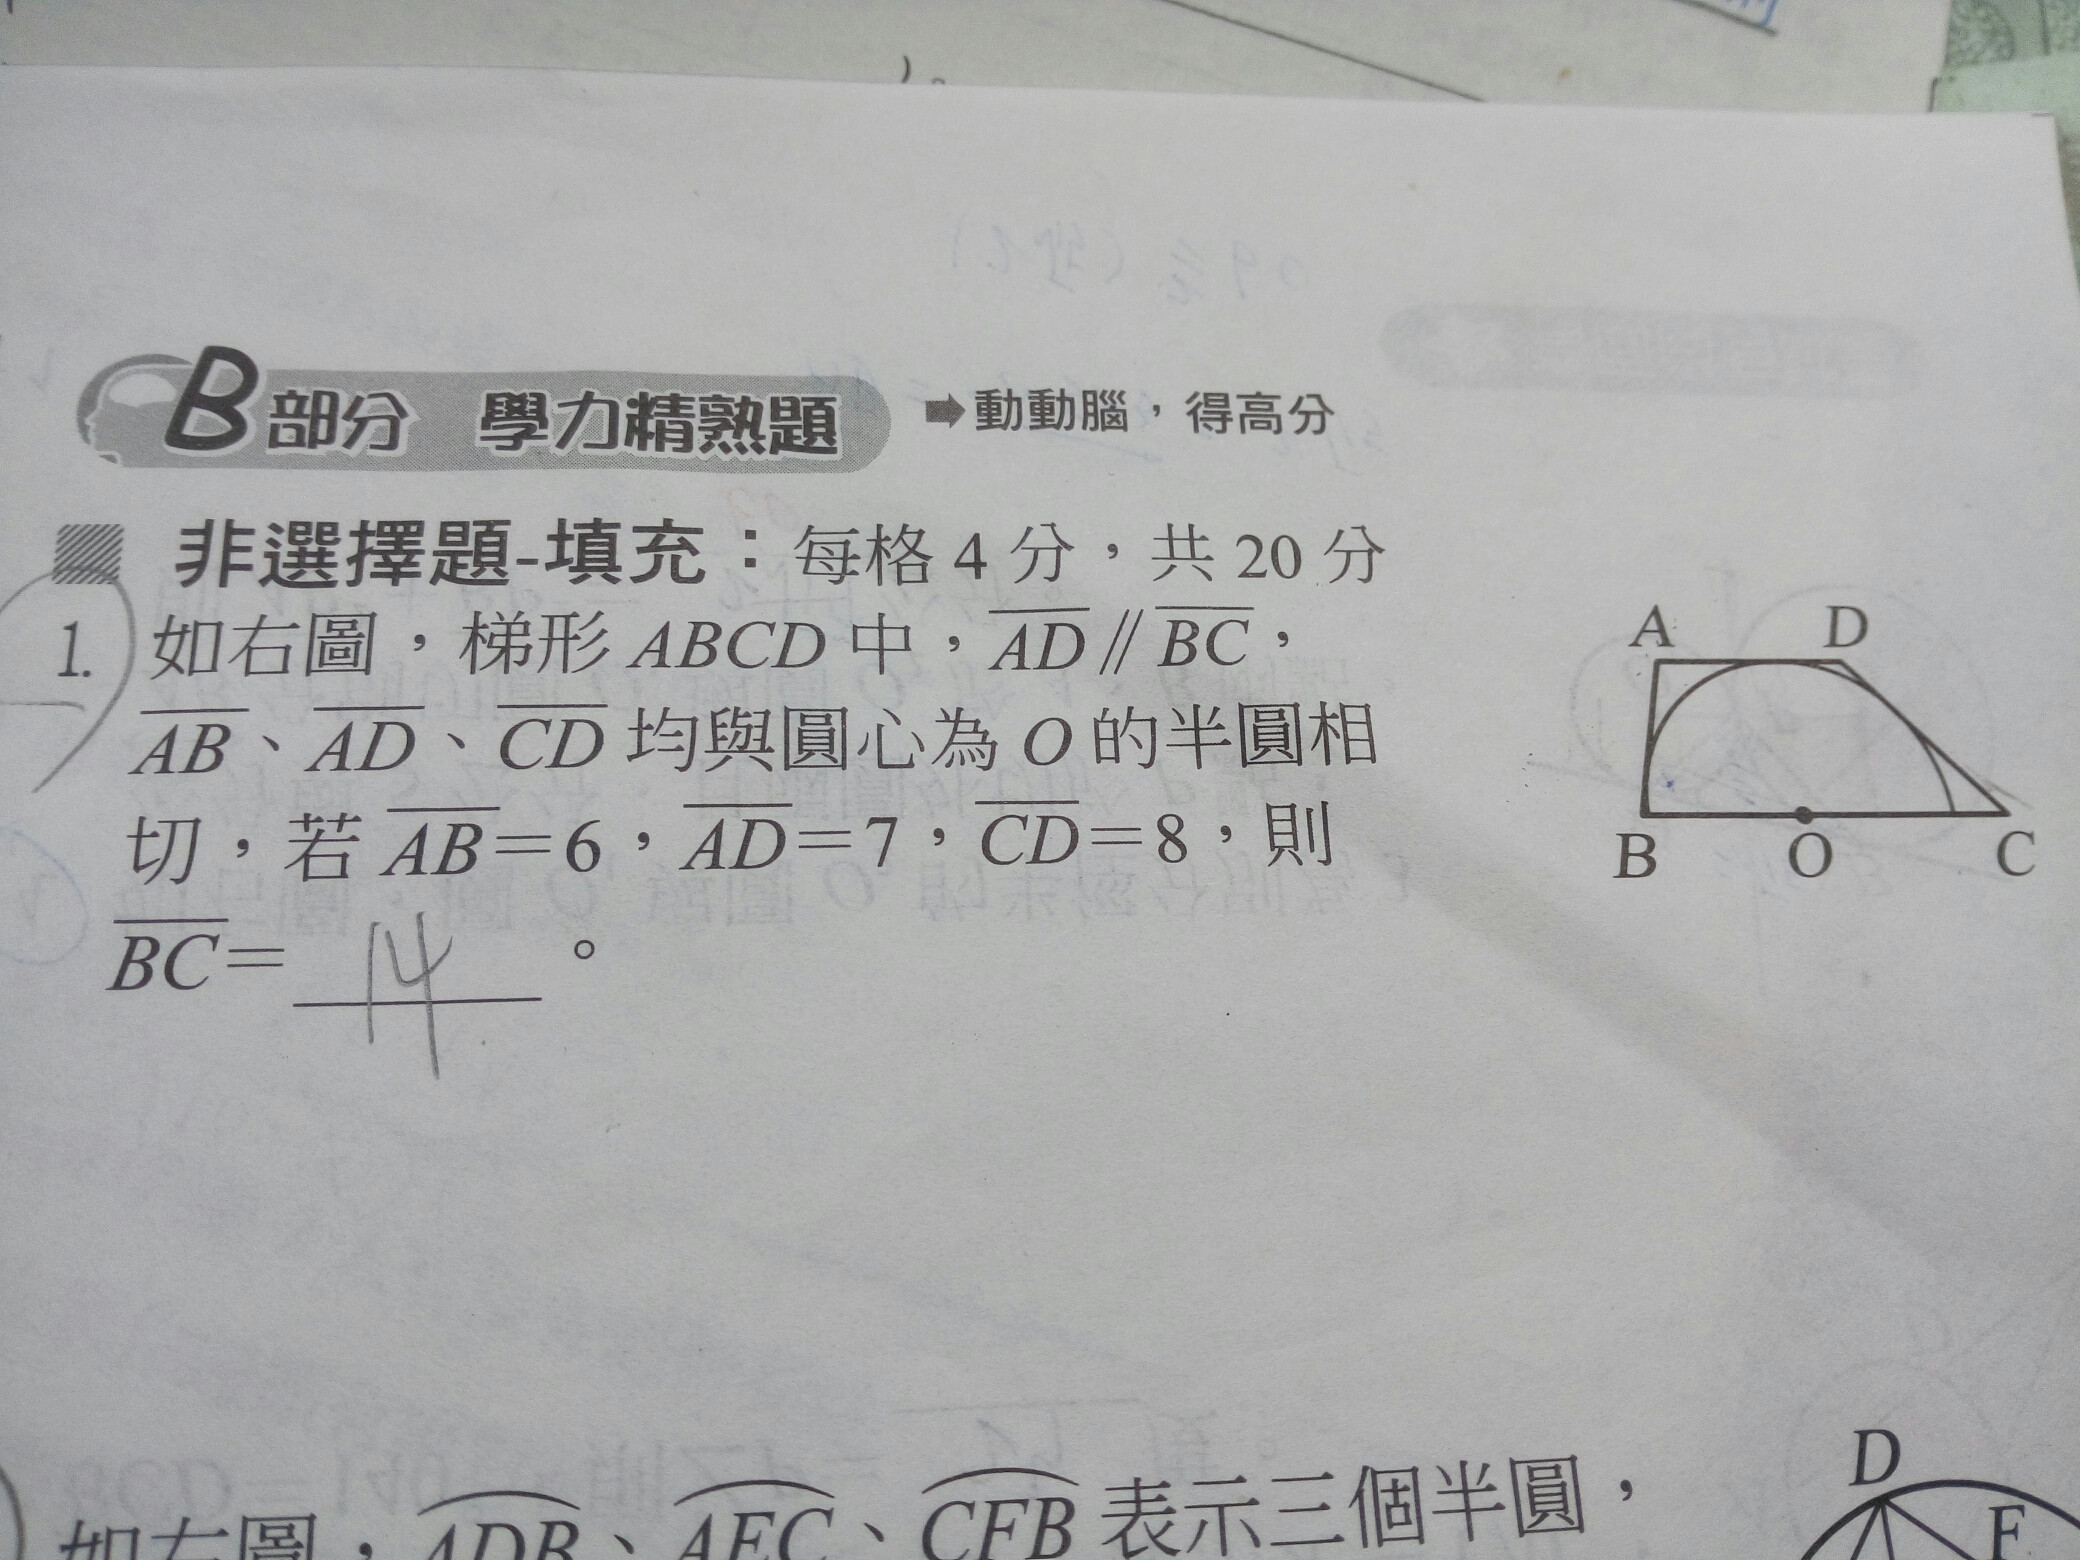 B部分 學力精熟題 ➡動動腦，得高分
非選擇題-填充：每格 4 分，共 20 分
1. 如右圖，梯形 ABCD 中，AD // BC，
AB、AD、CD 均與圓心為 O 的半圓相
切，若 AB＝6，AD＝7，CD＝8，則
BC＝ 14 。
A D
B O C
如右圖，ADB、AEC、CFB 表示三個半圓，
D
F